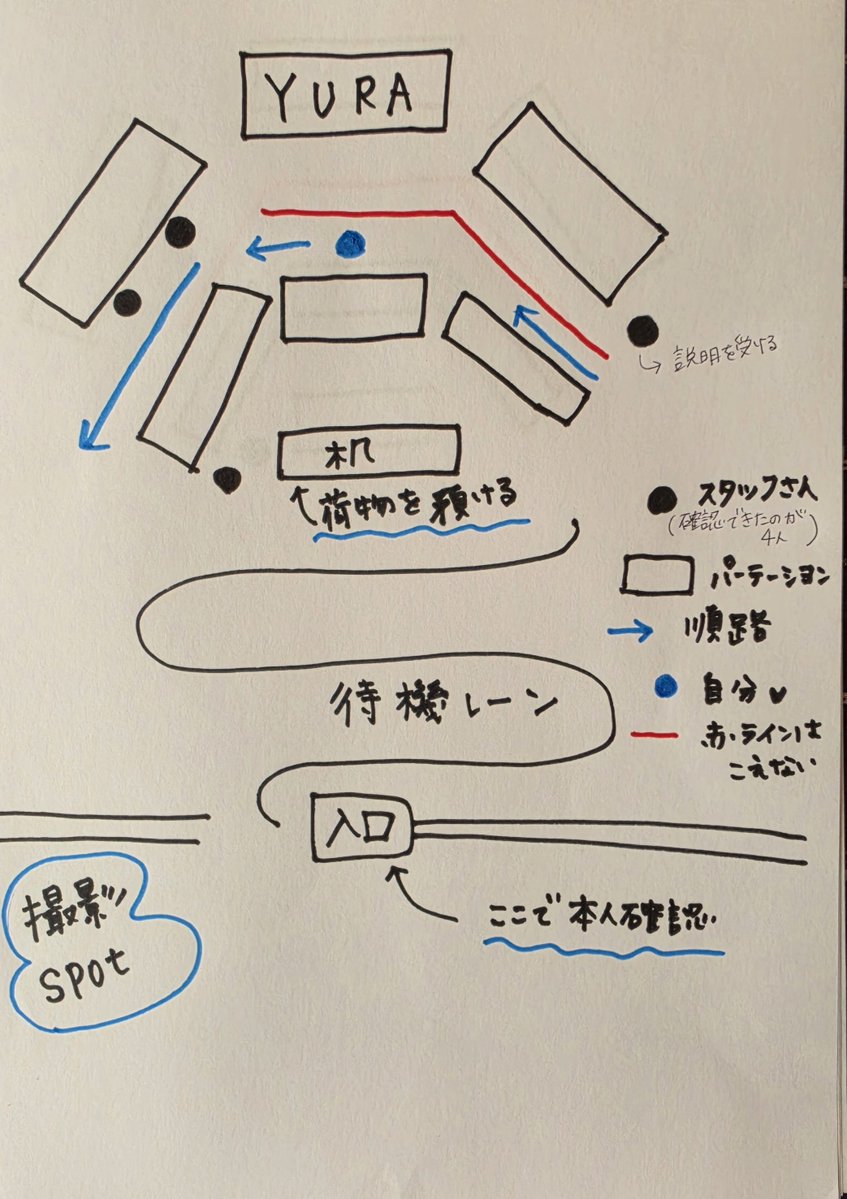 YURA
説明を受ける
机
荷物を預ける
スタッフさん
(確認できたのが
4人)
パーテーション
順路
自分
待機レーン
赤いラインは
こえない
入口
ここで本人確認
撮影
spot